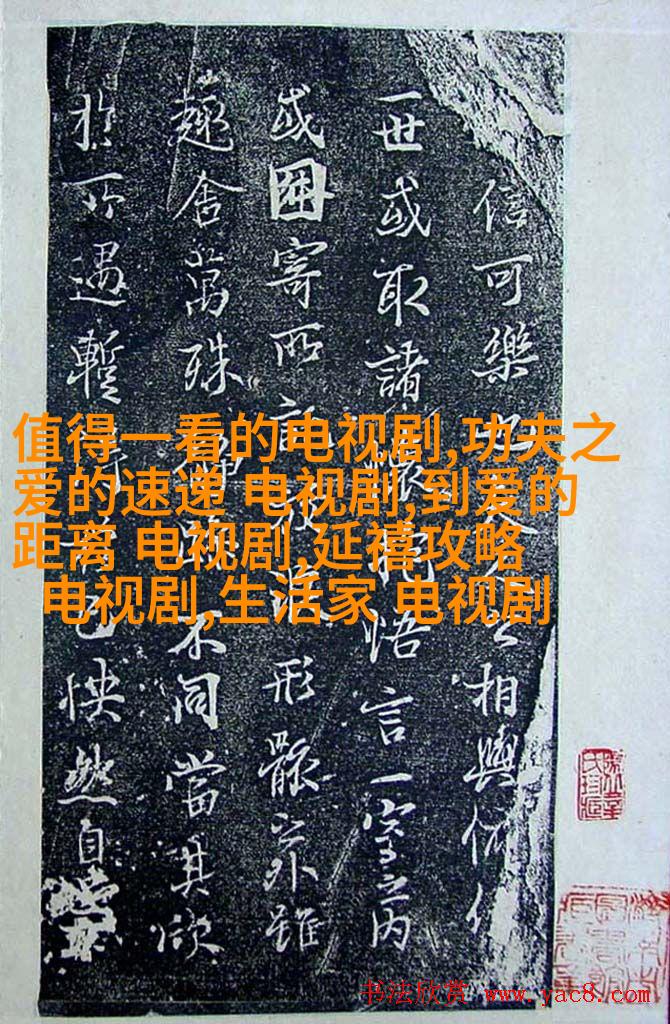 信可樂相與俯仰
一世或取諸懷抱悟言一室之內
或因寄所託放浪形骸之外雖
趣舍萬殊不同當其欣
於所遇暫得己快然自
值得一看的电视剧,功夫之
爱的速递 电视剧,到爱的
距离 电视剧,延禧攻略
电视剧,生活家 电视剧
书法欣赏 www.yac8.com